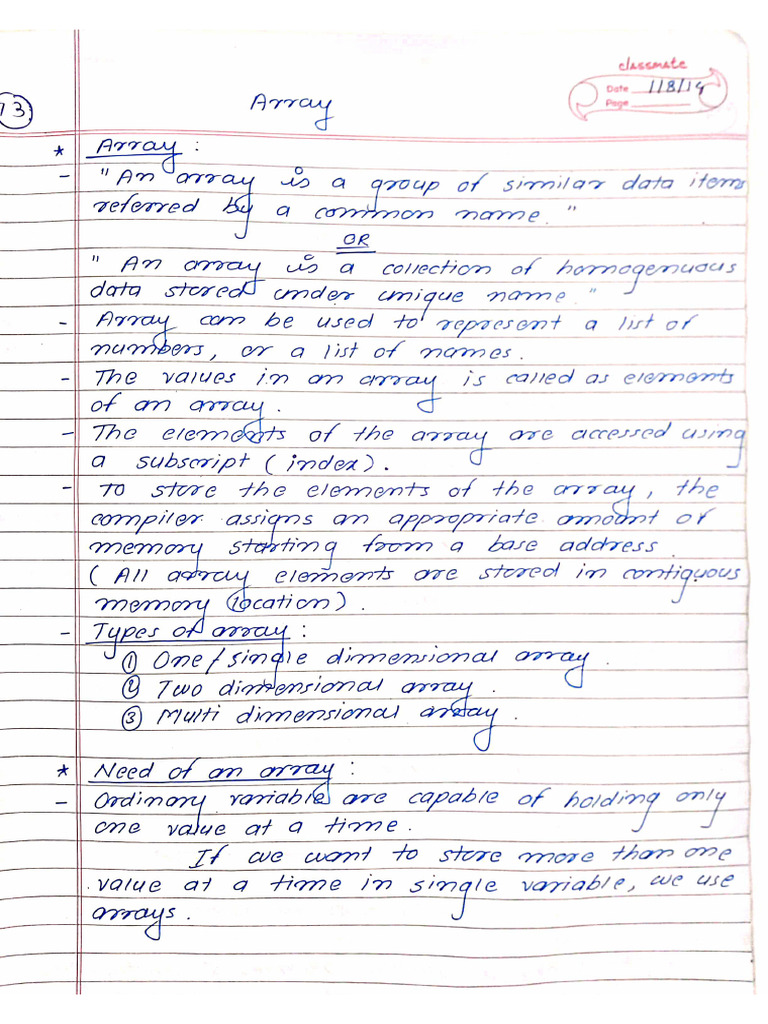 classmate
Date 1/8/19
Page
13
Array
* Array :
- "An array is a group of similar data items
referred by a common name."
OR
" An array is a collection of homogenuous
data stored under unique name."
- Array can be used to represent a list of
numbers, or a list of names.
- The values in an array is called as elements
of an array.
- The elements of the array are accessed using
a subscript (index).
- To store the elements of the array, the
compiler assigns an appropriate amount of
memory starting from a base address.
(All array elements are stored in contiguous
memory location).
- Types of array :
① One/single dimensional array.
② Two dimensional array.
③ Multi dimensional array.
* Need of an array :
- Ordinary variable are capable of holding only
one value at a time.
If we want to store more than one
value at a time in single variable, we use
arrays.